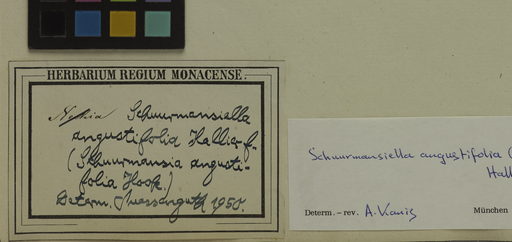 HERBARIUM REGIUM MONACENSE.
Schuurmansiella
angustifolia Hallier f.
(Schuurmansia angusti-
folia Hook.)
Determ. 1955.
Schuurmansiella angustifolia (
Hall
Determ. – rev. A. Kanis München